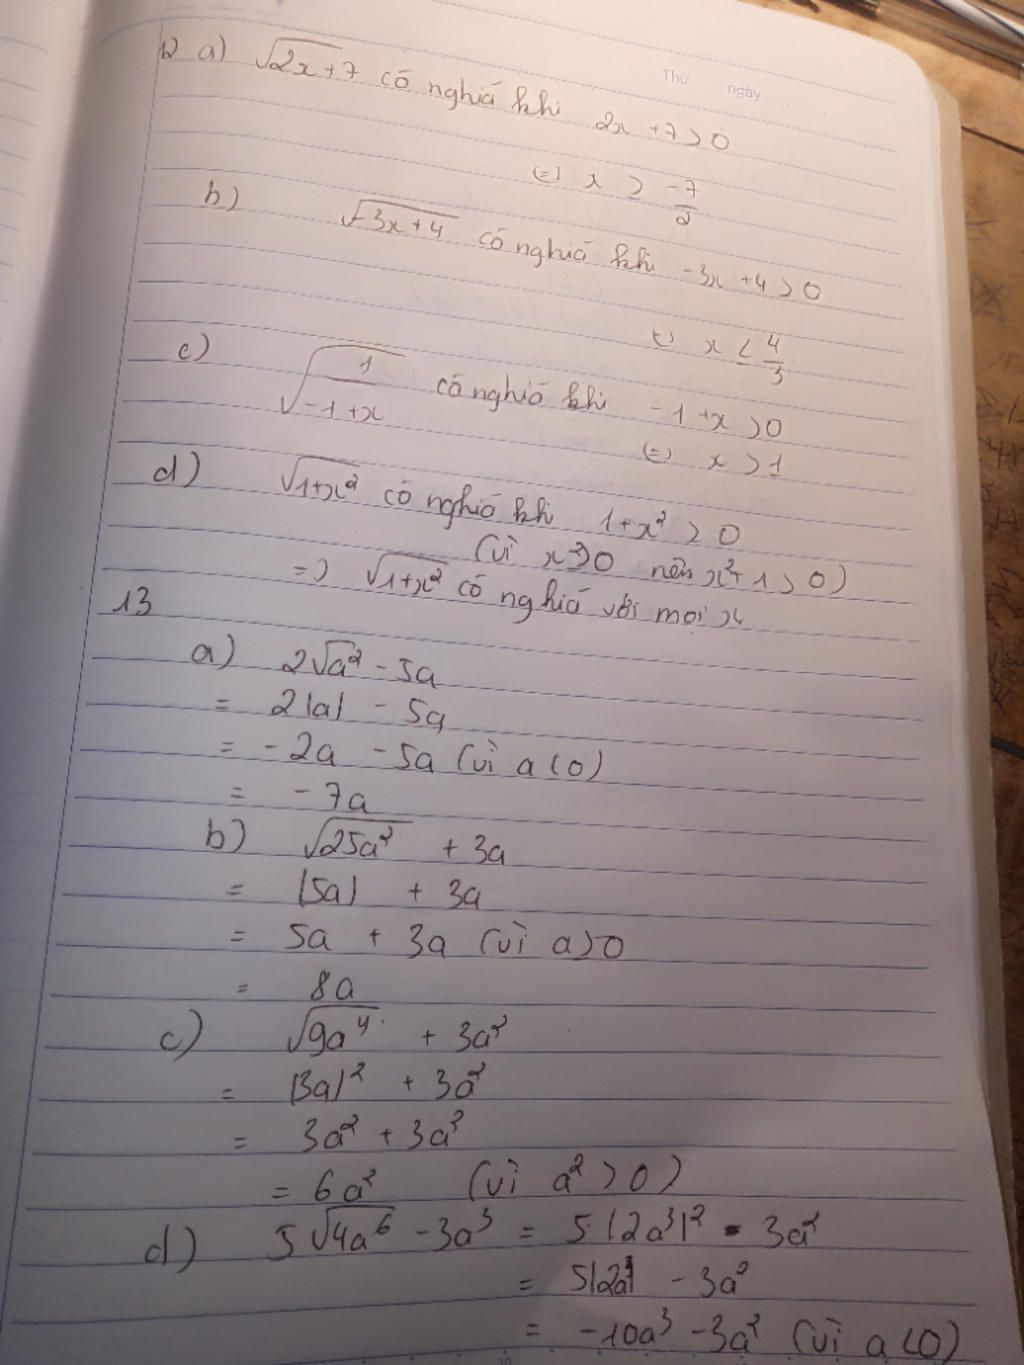 12 a) √2x+7 có nghiã khi 2x +7 > 0
Thứ ngày
(=) x ≥ -7/2
b) √-3x+4 có nghiã khi -3x +4 > 0
(=) x < 4/3
c) √1/-1+x có nghiã khi -1 +x > 0
(=) x > 1
d) √1+x² có nghiã khi 1+x² > 0
(vì x²≥0 nên x²+1 > 0)
=) √1+x² có nghiã với mọi x
13
a) 2√a² - 5a
= 2|a| - 5a
= -2a - 5a (vì a<0)
= -7a
b) √25a² + 3a
= |5a| + 3a
= 5a + 3a (vì a>0
= 8a
c) √9a⁴ + 3a²
= |3a|² + 3a²
= 3a² + 3a²
= 6a² (vì a² > 0)
d) 5√4a⁶ - 3a³ = 5.|2a³|² - 3a²
= 5|2a³| - 3a²
= -10a³ - 3a² (vì a<0)